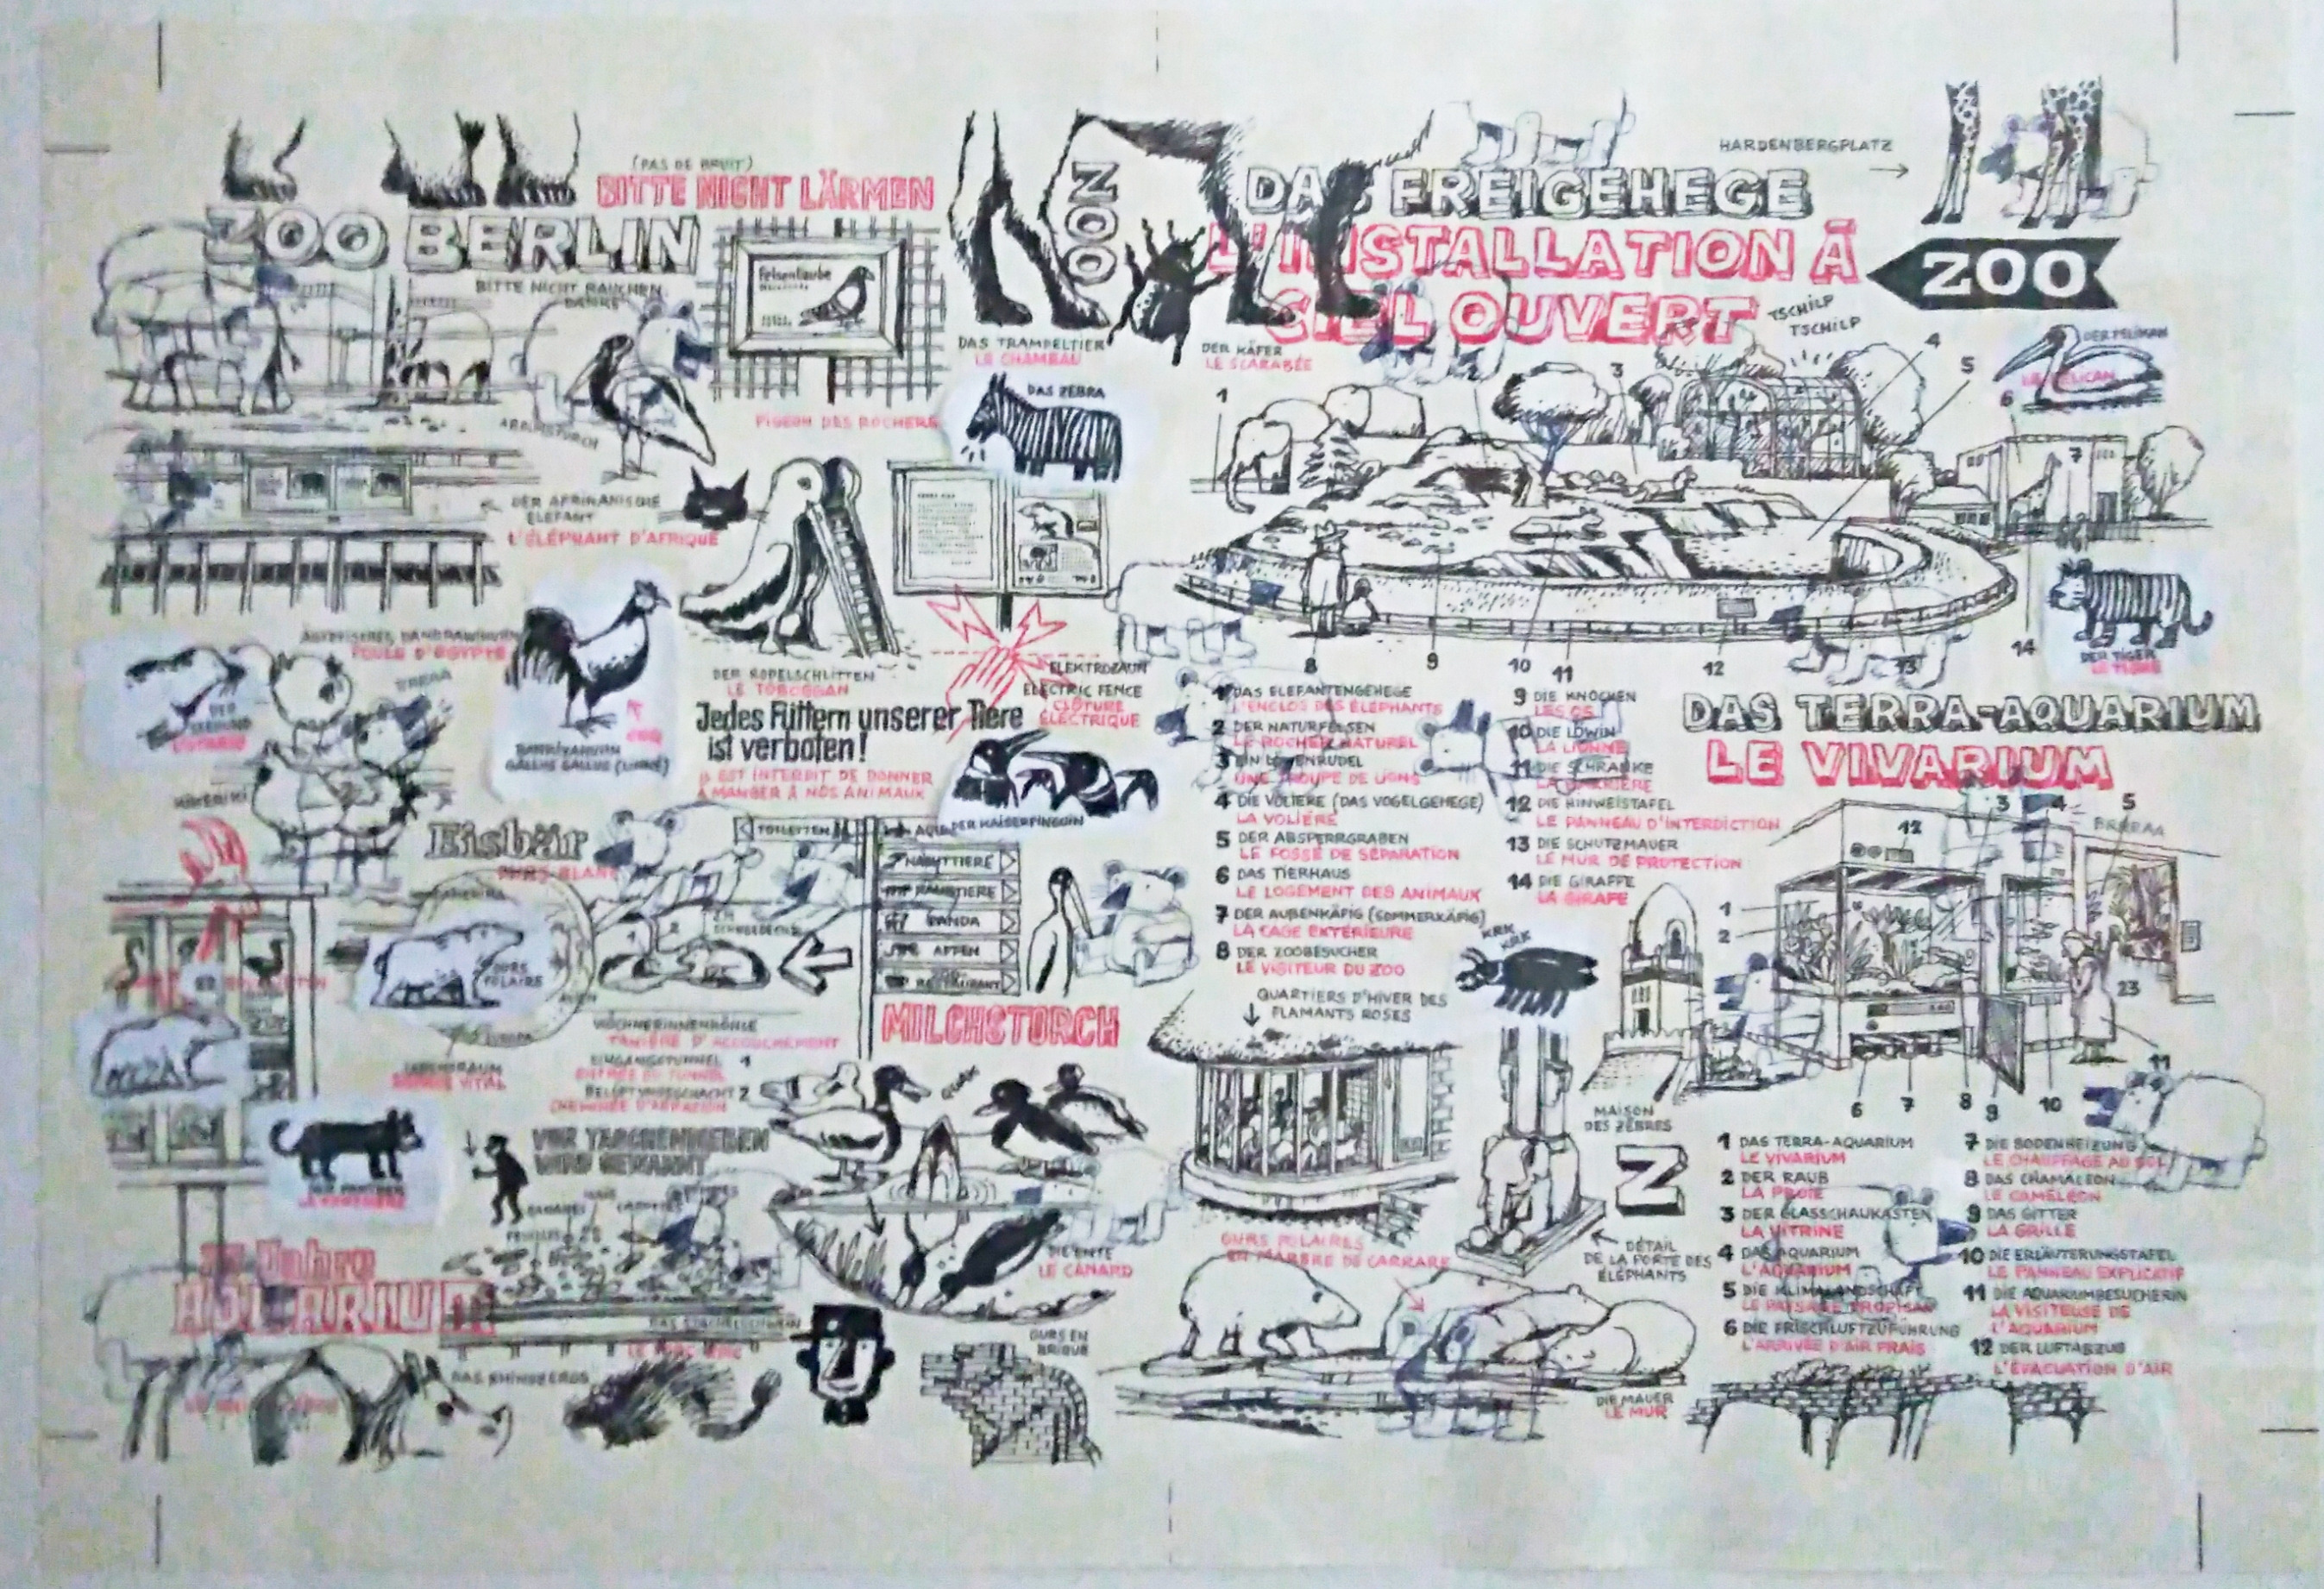 (PAS DE BRUIT)
BITTE NICHT LÄRMEN
ZOO BERLIN
BITTE NICHT RAUCHEN
DANKE
Felsentaube
PIGEON DES ROCHERS
DER AFRIKANISCHE
ELEFANT
L'ÉLÉPHANT D'AFRIQUE
ZOO
DAS TRAMPELTIER
LE CHAMEAU
DER KÄFER
LE SCARABÉE
DAS ZEBRA
DAS FREIGEHEGE
L'INSTALLATION À
CIEL OUVERT
HARDENBERGPLATZ
ZOO
TSCHILP
TSCHILP
DER PELIKAN
LE PELICAN
1
2
3
4
5
6
7
8
9
10
11
12
13
14
DER TIGER
LE TIGRE
POULE D'EGYPTE
GALLUS GALLUS
COQ
DER RODELSCHLITTEN
LE TOBOGGAN
ELEKTROZAUN
ELECTRIC FENCE
CLÔTURE
ÉLECTRIQUE
Jedes Füttern unserer Tiere
ist verboten!
IL EST INTERDIT DE DONNER
A MANGER À NOS ANIMAUX
DER KAISERPINGUIN
KIKERIKI
Eisbär
OURS BLANC
TOILETTEN
AQUA
RAUBTIERE
PANDA
AFFEN
RESTAURANT
MILCHSTORCH
OURS
POLAIRE
EUROPA
LEBENSRAUM
ESPACE VITAL
WÖCHNERINNENHÖHLE
TANIÈRE D'ACCOUCHEMENT
EINGANGSTUNNEL 1
ENTRÉE DU TUNNEL
BELÜFTUNGSSCHACHT 2
CHEMINÉE D'AÉRATION
VOR TASCHENDIEBEN
WIRD GEWARNT
LA PANTHÈRE
AQUARIUM
DIE ENTE
LE CANARD
DAS STACHELSCHWEIN
LE PORC-ÉPIC
DAS RHINOZEROS
OURS EN
BRIQUE
1 DAS ELEFANTENGEHEGE
L'ENCLOS DES ÉLÉPHANTS
2 DER NATURFELSEN
LE ROCHER NATUREL
3 EIN LÖWENRUDEL
UNE TROUPE DE LIONS
4 DIE VOLIERE (DAS VOGELGEHEGE)
LA VOLIÈRE
5 DER ABSPERRGRABEN
LE FOSSÉ DE SÉPARATION
6 DAS TIERHAUS
LE LOGEMENT DES ANIMAUX
7 DER AUßENKÄFIG (SOMMERKÄFIG)
LA CAGE EXTÉRIEURE
8 DER ZOOBESUCHER
LE VISITEUR DU ZOO
9 DIE KNOCHEN
LES OS
10 DIE LÖWIN
LA LIONNE
11 DIE SCHRANKE
LA BARRIÈRE
12 DIE HINWEISTAFEL
LE PANNEAU D'INTERDICTION
13 DIE SCHUTZMAUER
LE MUR DE PROTECTION
14 DIE GIRAFFE
LA GIRAFE
QUARTIERS D'HIVER DES
FLAMANTS ROSES
KRK
KRK
OURS POLAIRES
EN MARBRE DE CARRARE
MAISON
DES ZÈBRES
Z
DÉTAIL
DE LA PORTE DES
ÉLÉPHANTS
DIE MAUER
LE MUR
DAS TERRA-AQUARIUM
LE VIVARIUM
1
2
3
4
5
12
23
11
6
7
8
9
10
1 DAS TERRA-AQUARIUM
LE VIVARIUM
2 DER RAUB
LA PROIE
3 DER GLASSCHAUKASTEN
LA VITRINE
4 DAS AQUARIUM
L'AQUARIUM
5 DIE KLIMALANDSCHAFT
LE PAYSAGE TROPICAL
6 DIE FRISCHLUFTZUFÜHRUNG
L'ARRIVÉE D'AIR FRAIS
7 DIE BODENHEIZUNG
LE CHAUFFAGE AU SOL
8 DAS CHAMÄLEON
LE CAMÉLÉON
9 DAS GITTER
LA GRILLE
10 DIE ERLÄUTERUNGSTAFEL
LE PANNEAU EXPLICATIF
11 DIE AQUARIUMBESUCHERIN
LA VISITEUSE DE
L'AQUARIUM
12 DER LUFTABZUG
L'ÉVACUATION D'AIR